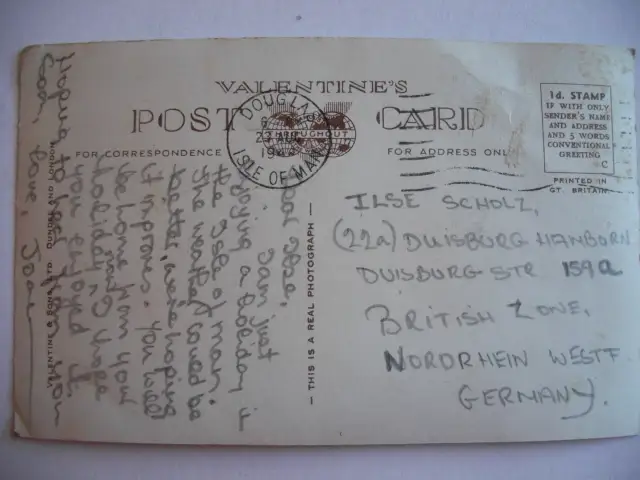 VALENTINE'S
POST CARD
THROUGHOUT
FOR CORRESPONDENCE
FOR ADDRESS ONLY
DOUGLAS
ISLE OF MAN
1d. STAMP
IF WITH ONLY
SENDER'S NAME
AND ADDRESS
AND 5 WORDS
CONVENTIONAL
GREETING
C
PRINTED IN
GT. BRITAIN
Dear Ilse,
I am just
joying a holiday i
the Isle of man.
The weather could be
better, were hoping
it improves. You will
be home from your
holiday now I hope
you enjoyed it.
Hoping to hear from you
soon, Love, Joan
— THIS IS A REAL PHOTOGRAPH —
VALENTINE & SONS, LTD. DUNDEE AND LONDON
ILSE SCHOLZ,
(22a) DUISBURG HAMBORN
DUISBURG STR 159a
BRITISH ZONE,
NORDRHEIN WESTF
GERMANY.